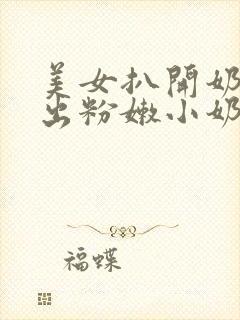 美女扒開奶
出粉嫩小奶
福蝶